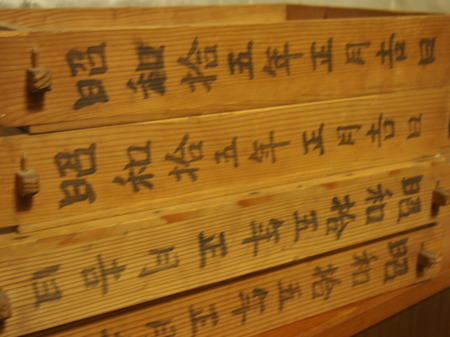 昭和拾五年正月吉日
昭和拾五年正月吉日
昭和拾五年正月吉日
昭和拾五年正月